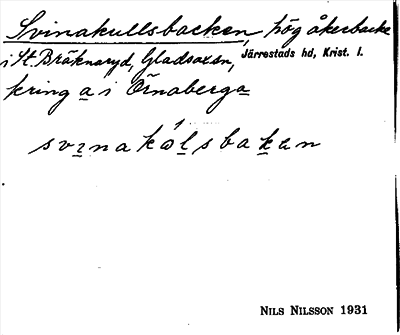 Svinakullsbacken, hög åkerbacke
i St. Bräknaryd, Gladsaxsn, Järrestads hd, Krist. l.
kring a i Örnaberga
svinakölsbakan
NILS NILSSON 1931